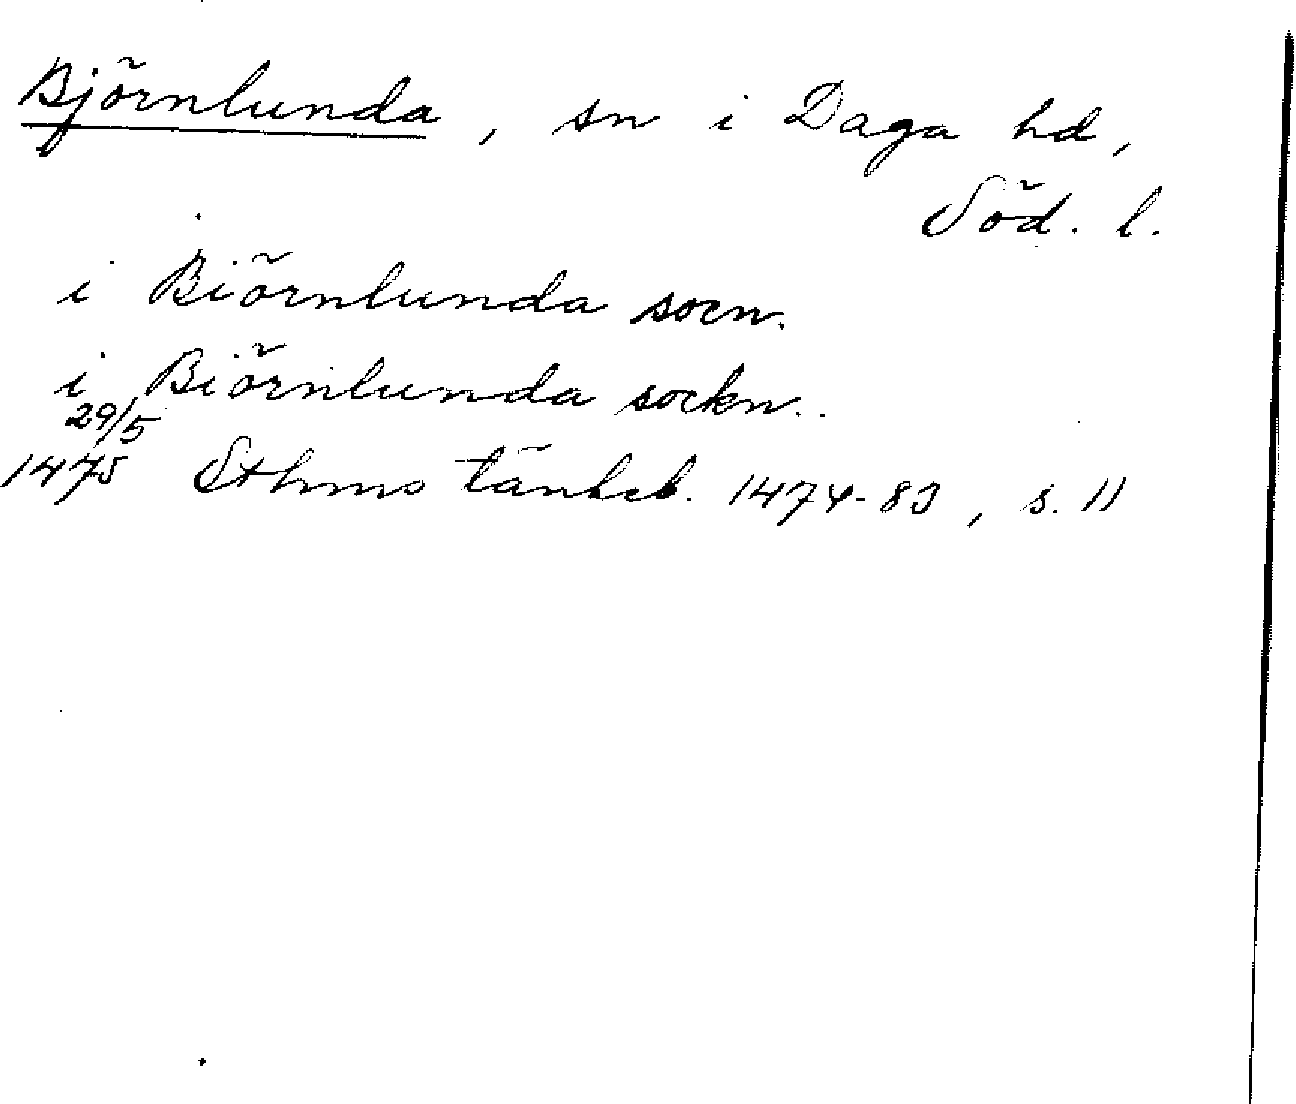 Björnlunda, sn i Daga hd,
Söd. l.
i Biörnlunda socn.
i Biörnlunda sockn..
29/5
1475 Sthms tänkeb. 1474-83, s. 11